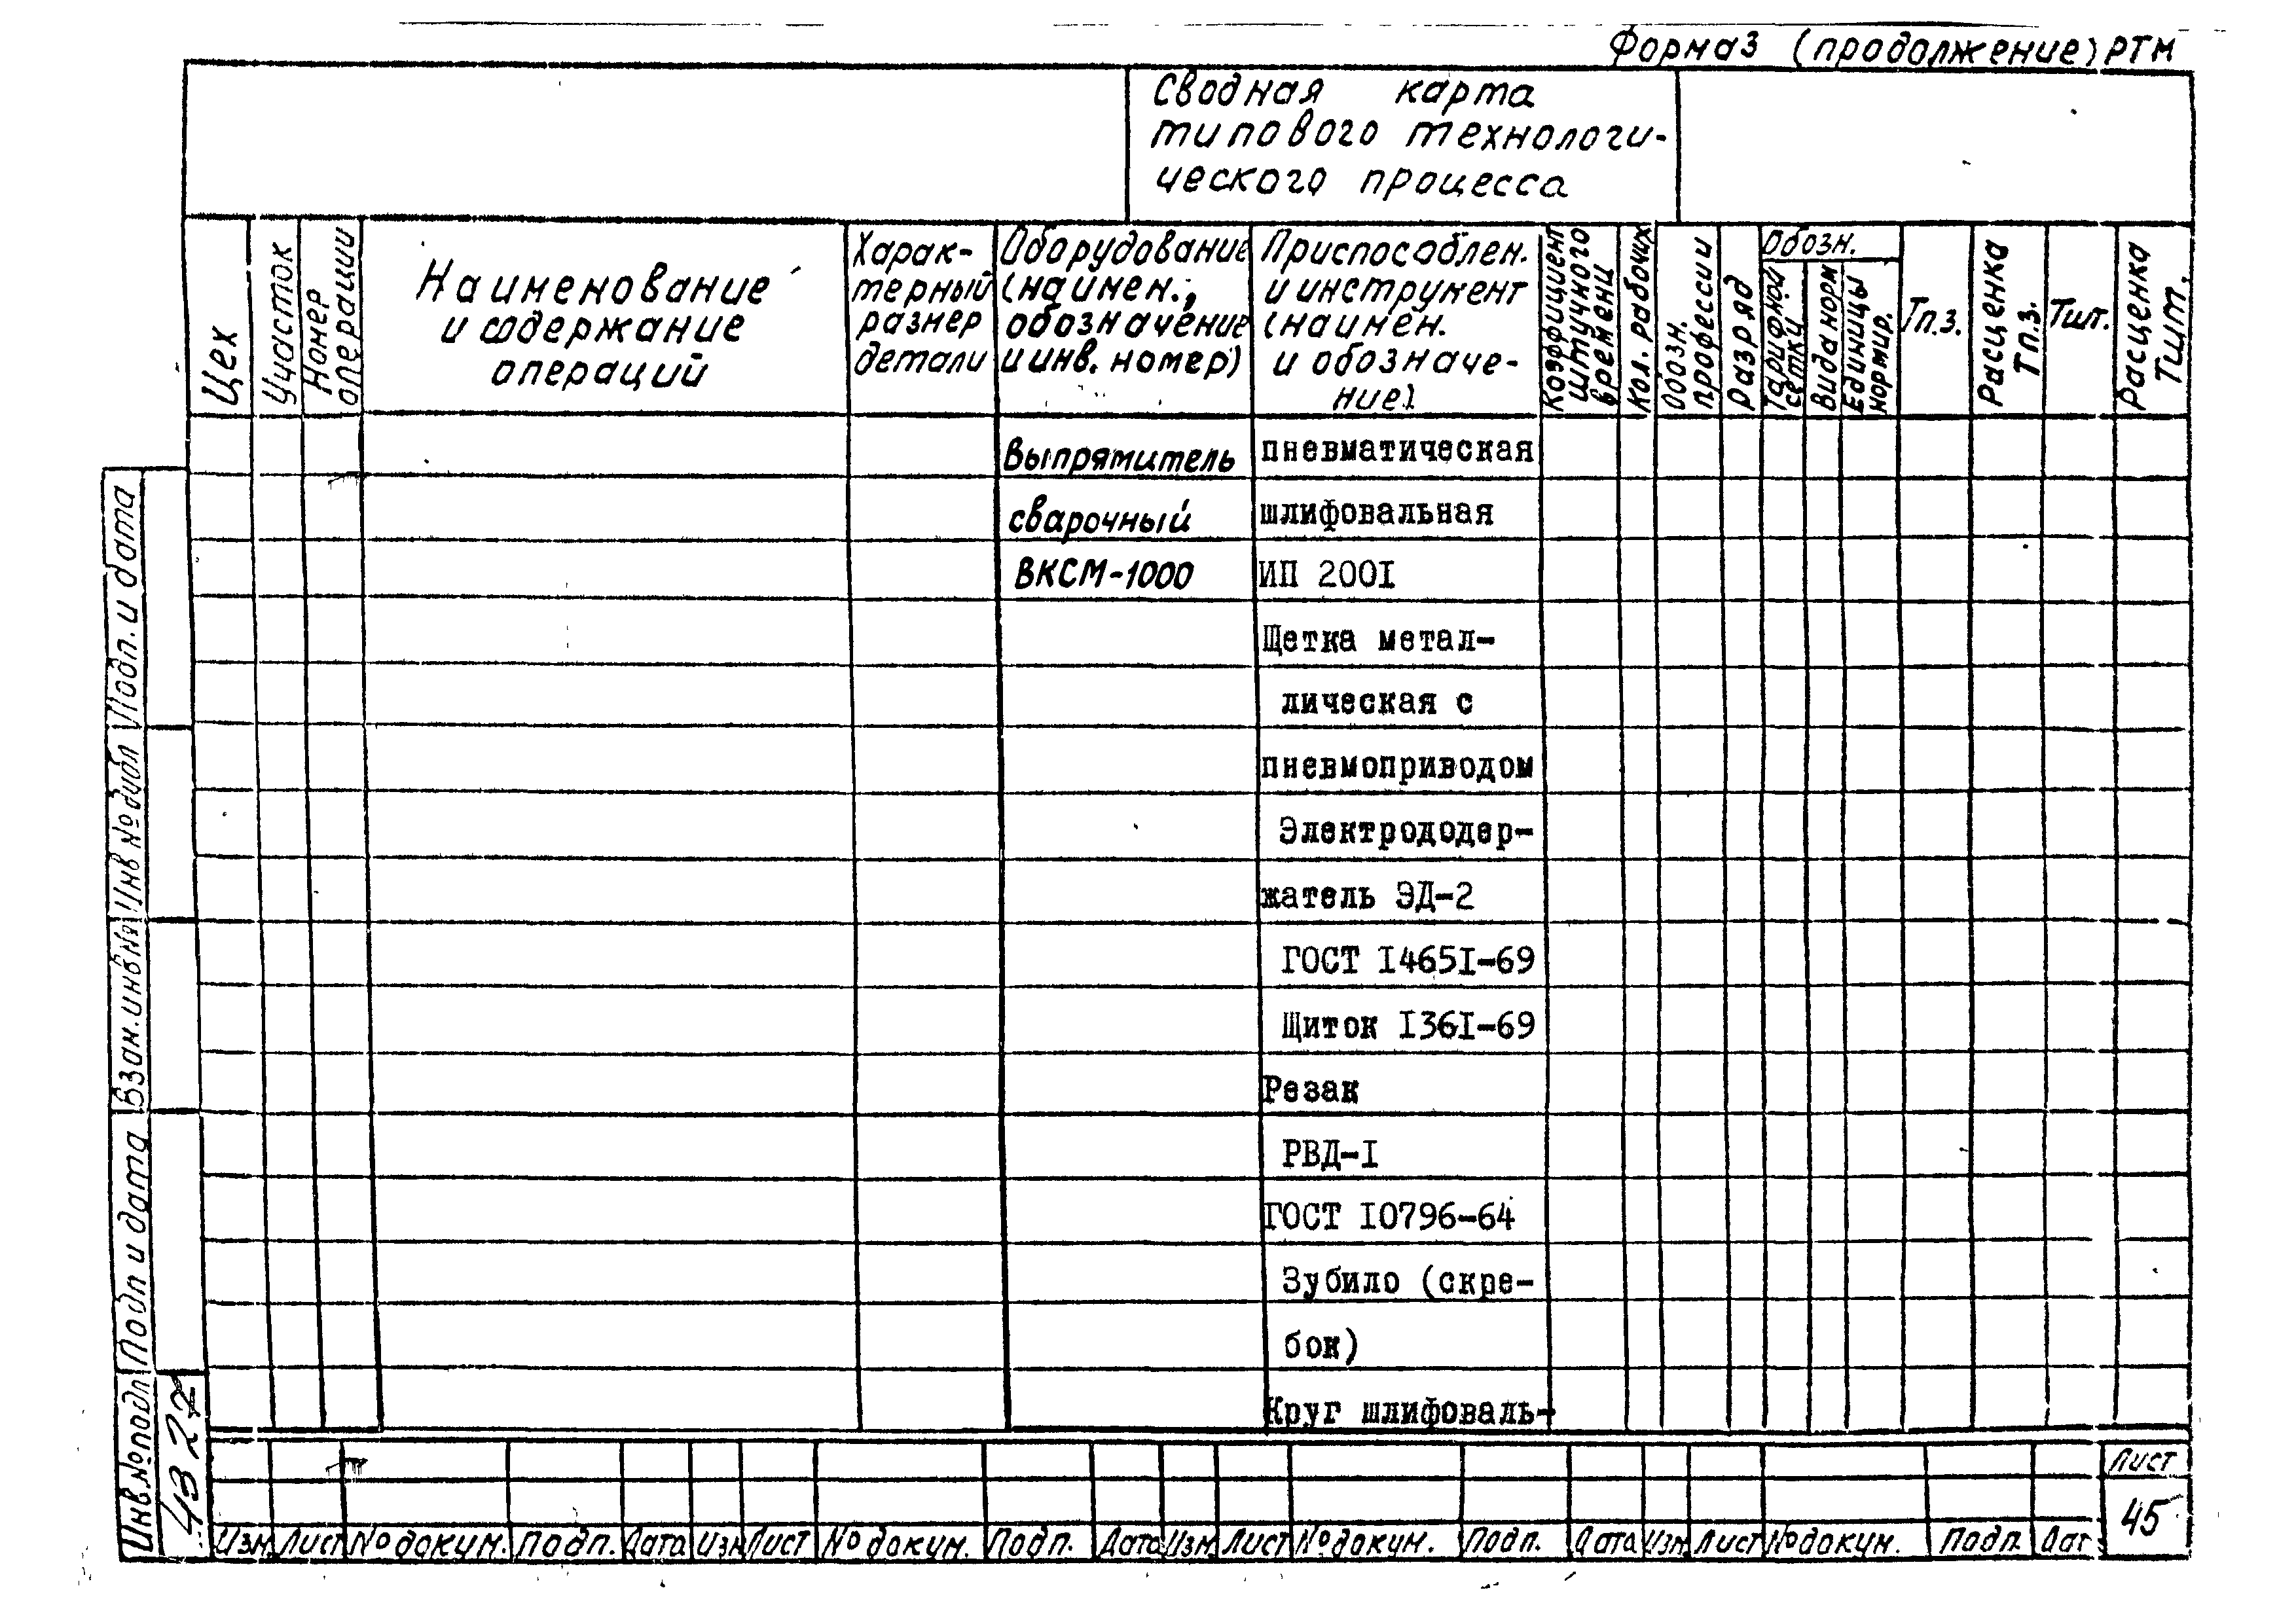 Форма 3 (продолжение) РТМ
Сводная карта
типового технологи-
ческого процесса
Цех
Участок
Номер
операции
Наименование
и содержание
операций
Харак-
терный
размер
детали
Оборудование
(наимен.,
обозначение
и инв. номер)
Приспособлен.
и инструмент
(наимен.
и обозначе-
ние).
Коэффициент
штучного
времени
Кол. рабочих
Обозн.
профессии
Разряд
Обозн.
Тарифной
сетки
Вида норм
Единицы
нормир.
Тп.з.
Расценка
Тп.з.
Тшт.
Расценка
Тшт.
Выпрямитель пневматическая
сварочный шлифовальная
ВКСМ-1000 ИП 200I
Щетка метал-
лическая с
пневмоприводом
Электрододер-
жатель ЭД-2
ГОСТ I465I-69
Щиток I36I-69
Резак
РВД-I
ГОСТ I0796-64
Зубило (скре-
бок)
Круг шлифоваль-
Подп. и дата
Инв № дубл
Взам. инв №
Подп и дата
Инв. № подл
4322
Изм Лист № докум. Подп. Дата Изм Лист № докум. Подп. Дата Изм. Лист № докум. Подп. Дата Изм Лист № докум. Подп. Дат
Лист
45